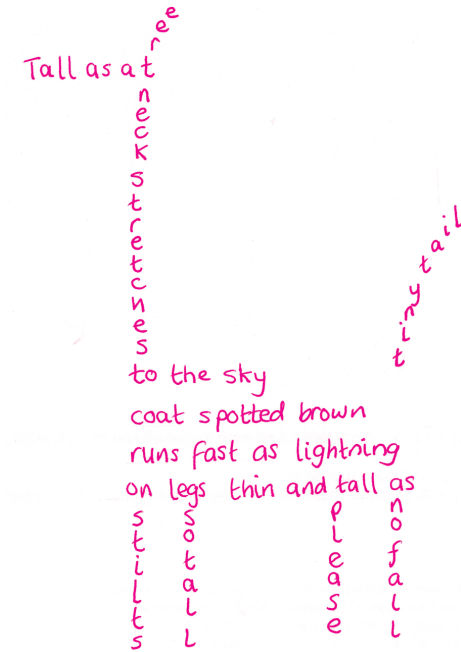 Tall as a tree
neck stretches
tiny tail
to the sky
coat spotted brown
runs fast as lightning
on legs thin and tall as
stilts
so tall
please
no fall